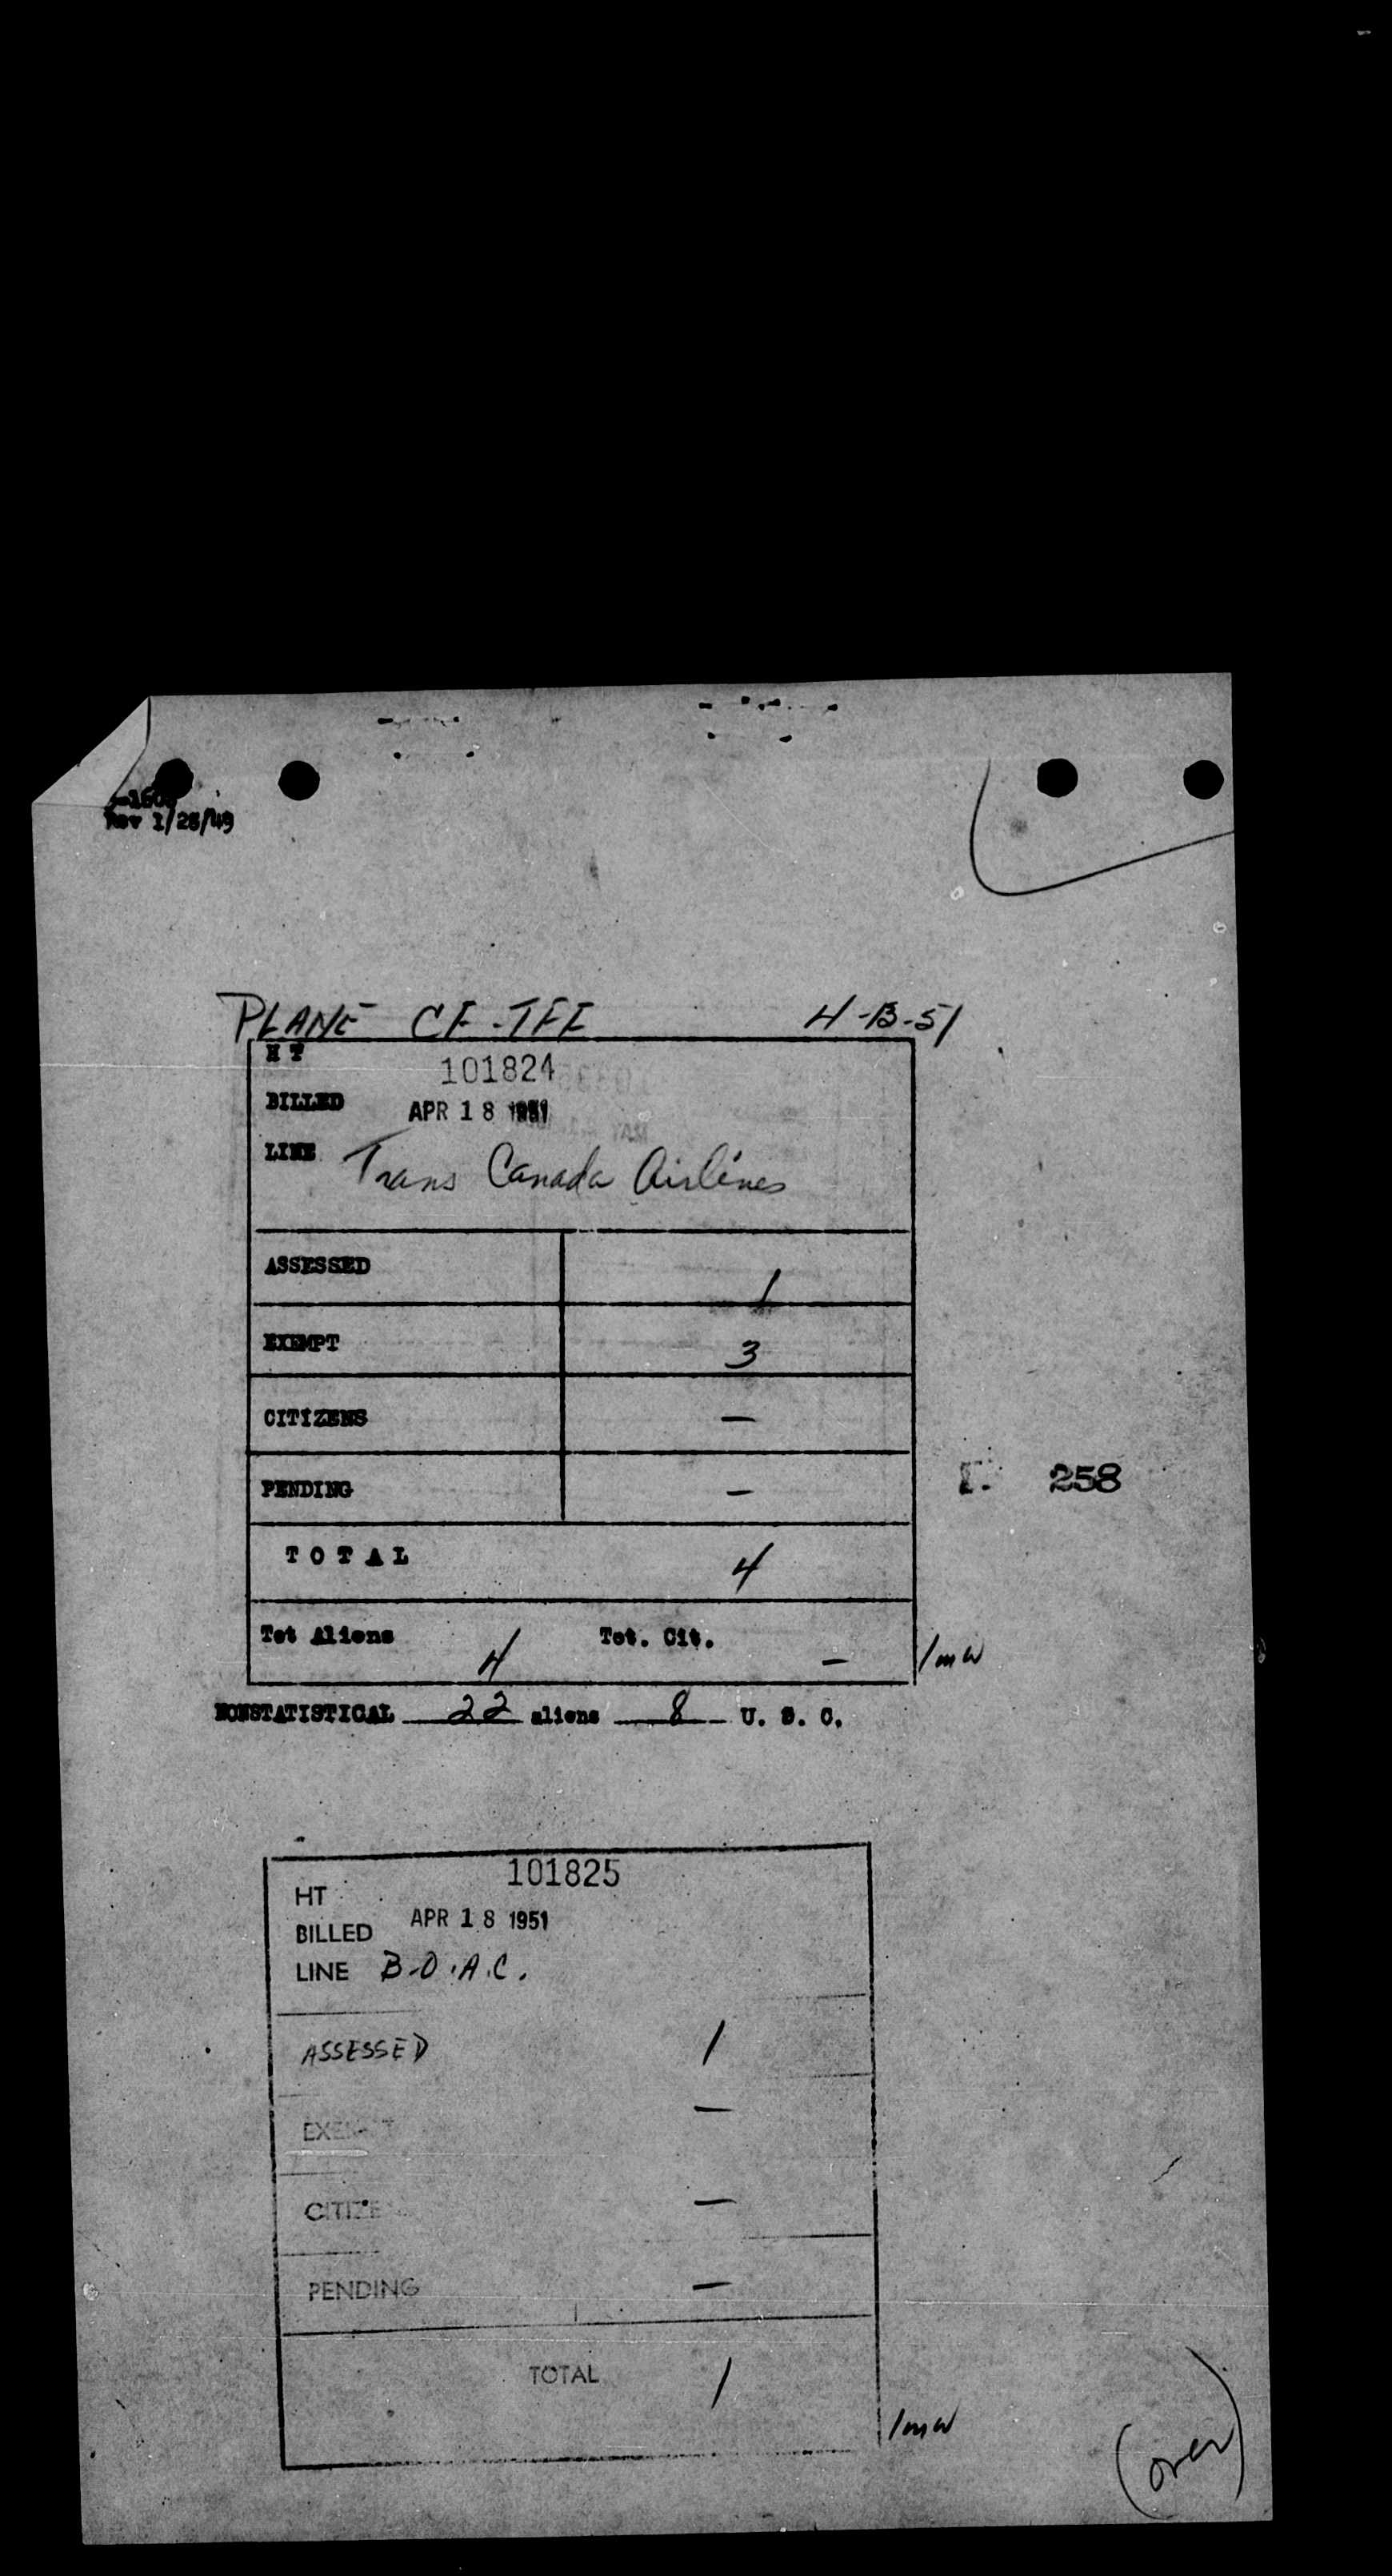 Rev 1/28/49
PLANE CF-TFE 4-13-51
H T 101824
BILLED APR 18 1951
LINE Trans Canada Airlines
ASSESSED 1
EXEMPT 3
CITIZENS —
PENDING —
258
T O T A L 4
Tot Aliens 4 Tot. Cit. —
/mw
NONSTATISTICAL 22 aliens 8 U. S. C.
101825
HT
BILLED APR 18 1951
LINE B.O.A.C.
ASSESSED 1
EXEMPT —
CITIZE —
PENDING —
TOTAL 1
/mw
(over)